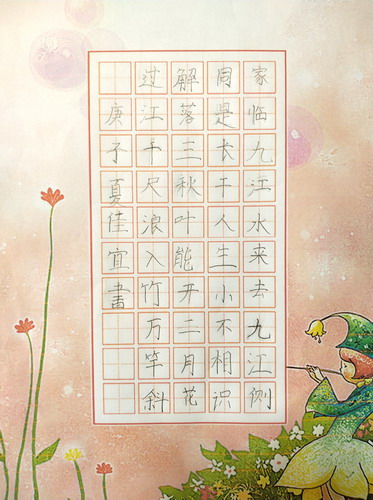 家临九江水来去九江侧
同是长干人生小不相识
解落三秋叶能开二月花
过江千尺浪入竹万竿斜
庚子夏佳宜书